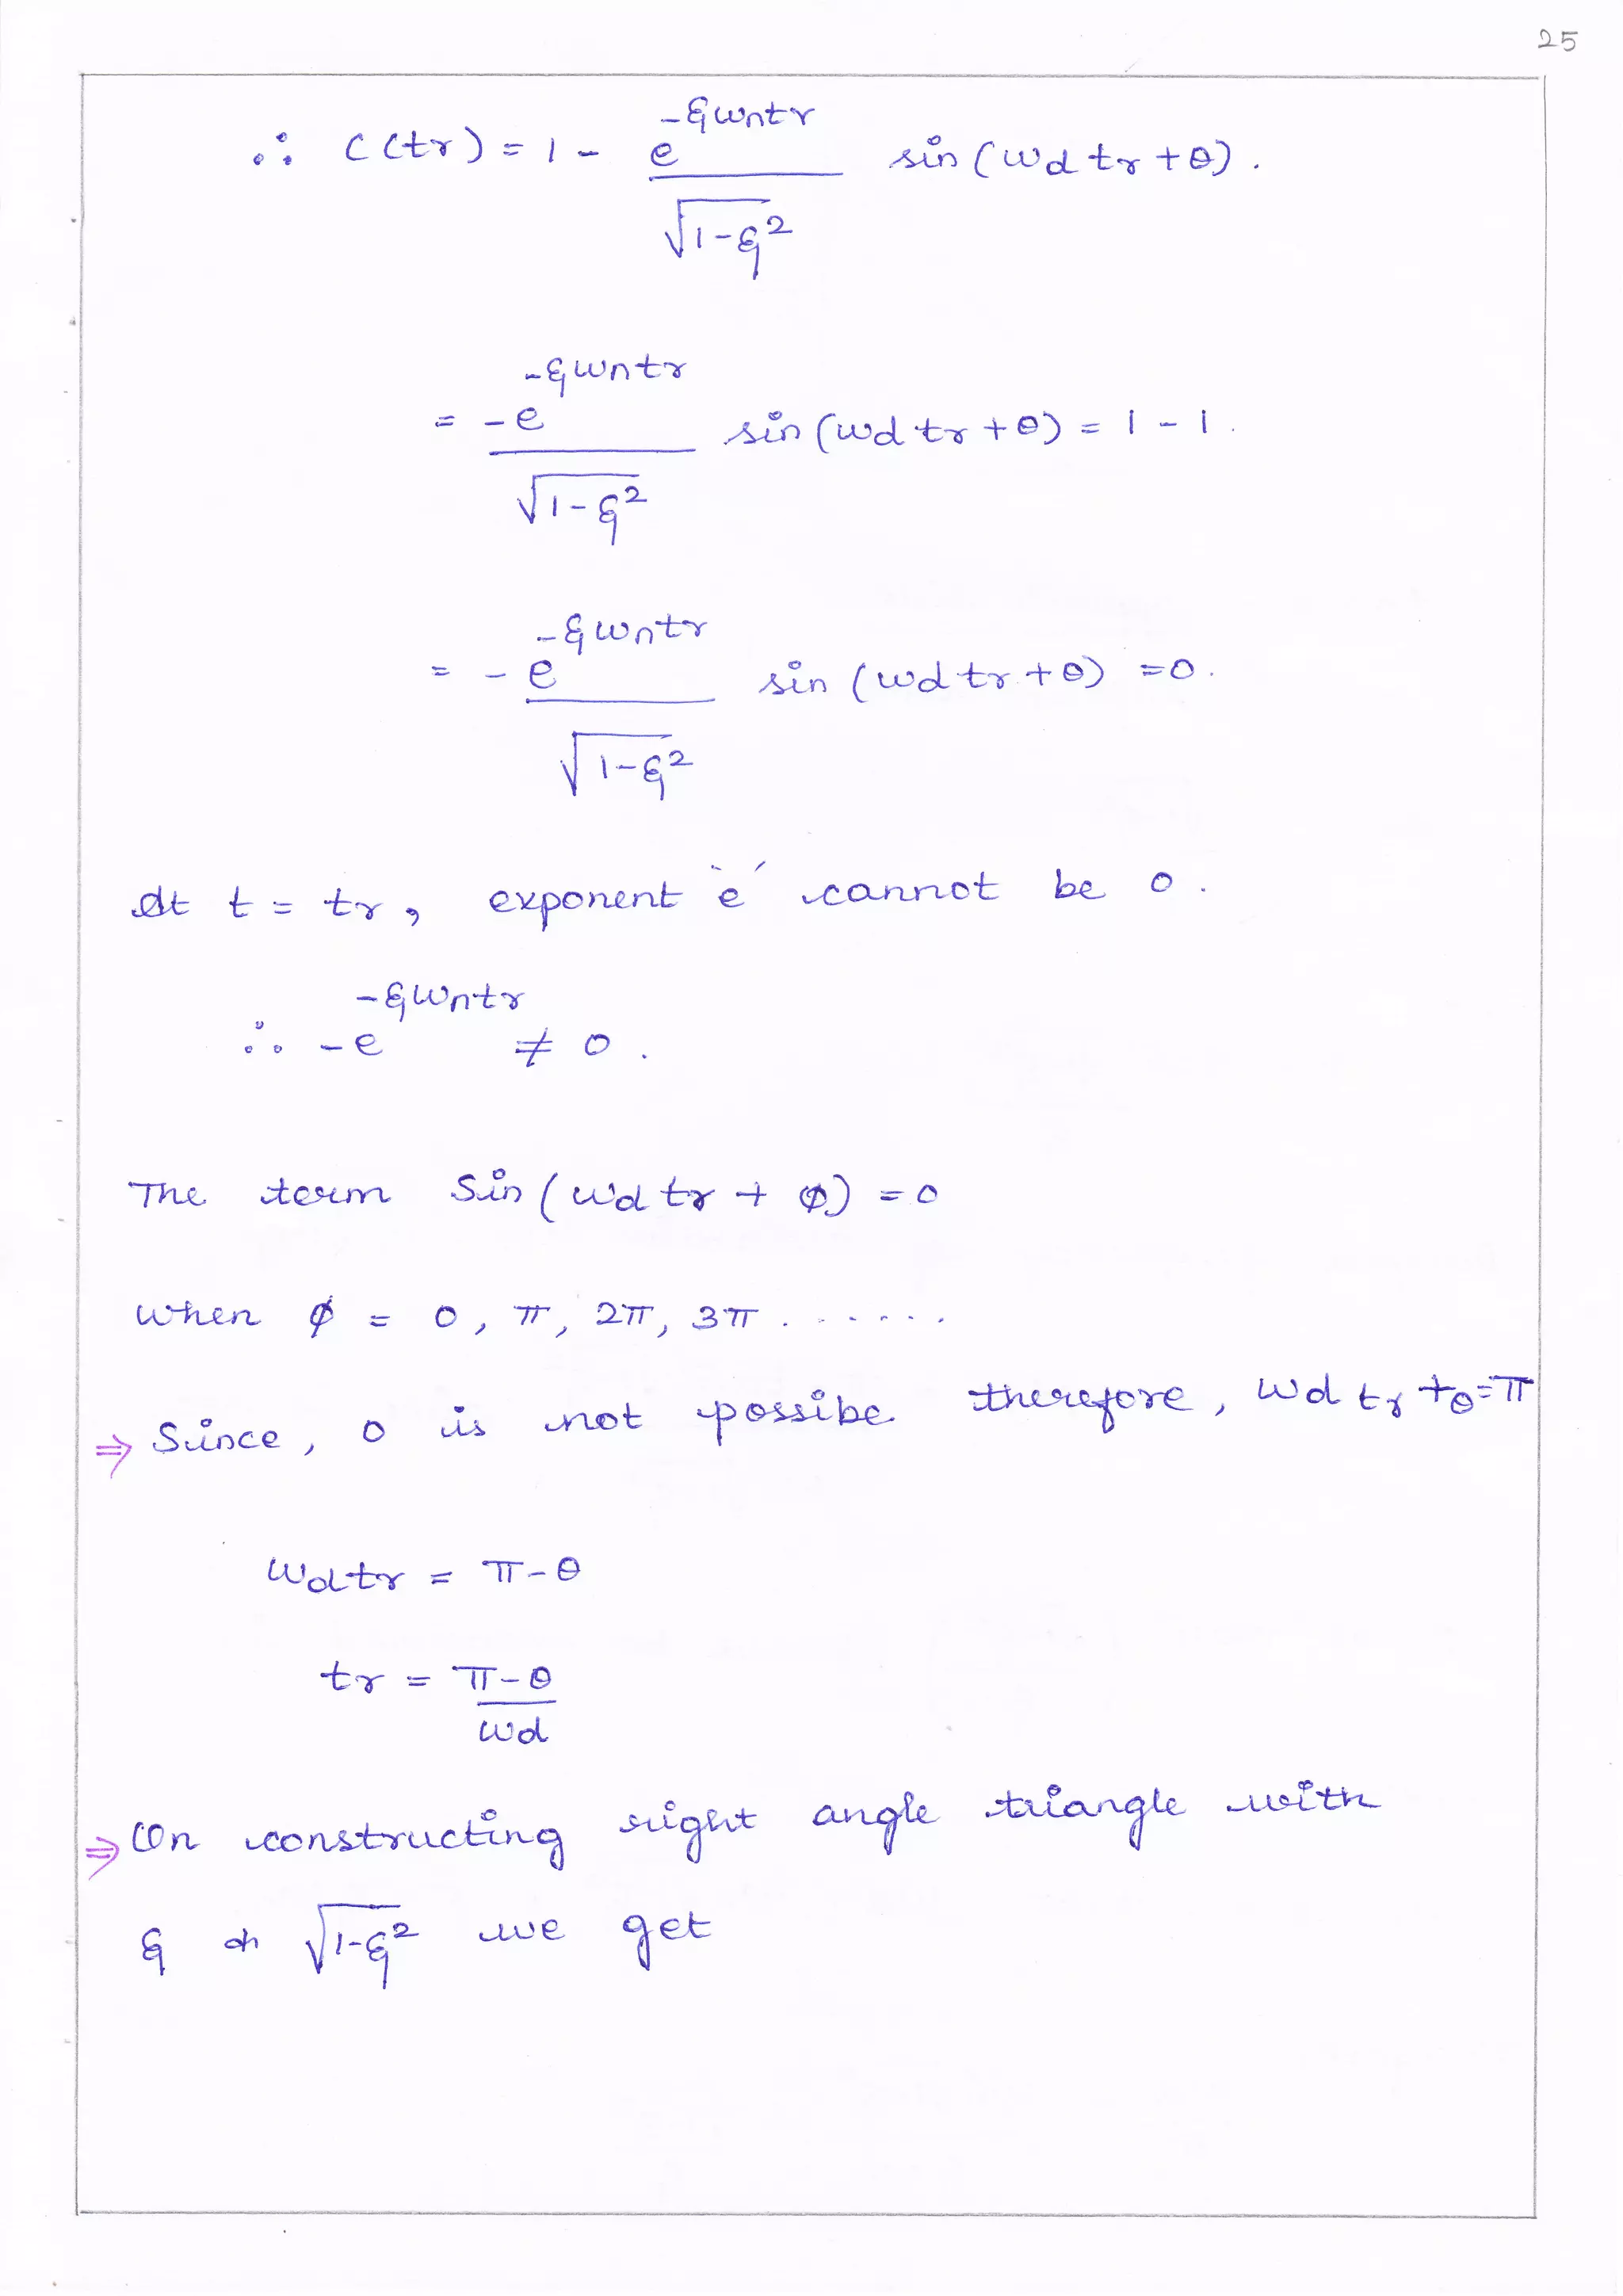 25
∴ C(tr) = 1 - e^{-ξωntr} / √1-ξ² sin(ωd tr + θ).
= -e^{-ξωntr} / √1-ξ² sin(ωd tr + θ) = 1 - 1.
= - e^{-ξωntr} / √1-ξ² sin(ωd tr + θ) = 0.
At t = tr, exponent `e´ cannot be 0.
∴ -e^{-ξωntr} ≠ 0.
The term Sin(ωd tr + φ) = 0
when φ = 0, π, 2π, 3π .......
⇒ Since, 0 is not possibe therefore, ωd tr + θ = π
ωdtr = π - θ
tr = π - θ / ωd
⇒ On constructing right angle triangle with
ξ & √1-ξ² we get